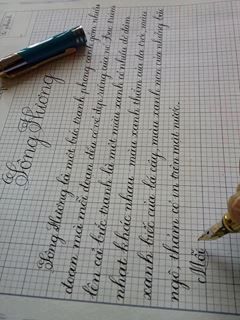 Sông Hương
Sông Hương là một bức tranh phong cảnh gồm nhiều
đoạn mà mỗi đoạn đều có vẻ đẹp riêng của nó. Bao trùm
lên cả bức tranh là một màu xanh có nhiều độ đậm
nhạt khác nhau: màu xanh thẳm của da trời, màu
xanh biếc của lá cây, màu xanh non của những bãi
ngô, thảm cỏ in trên mặt nước.
Mỗi